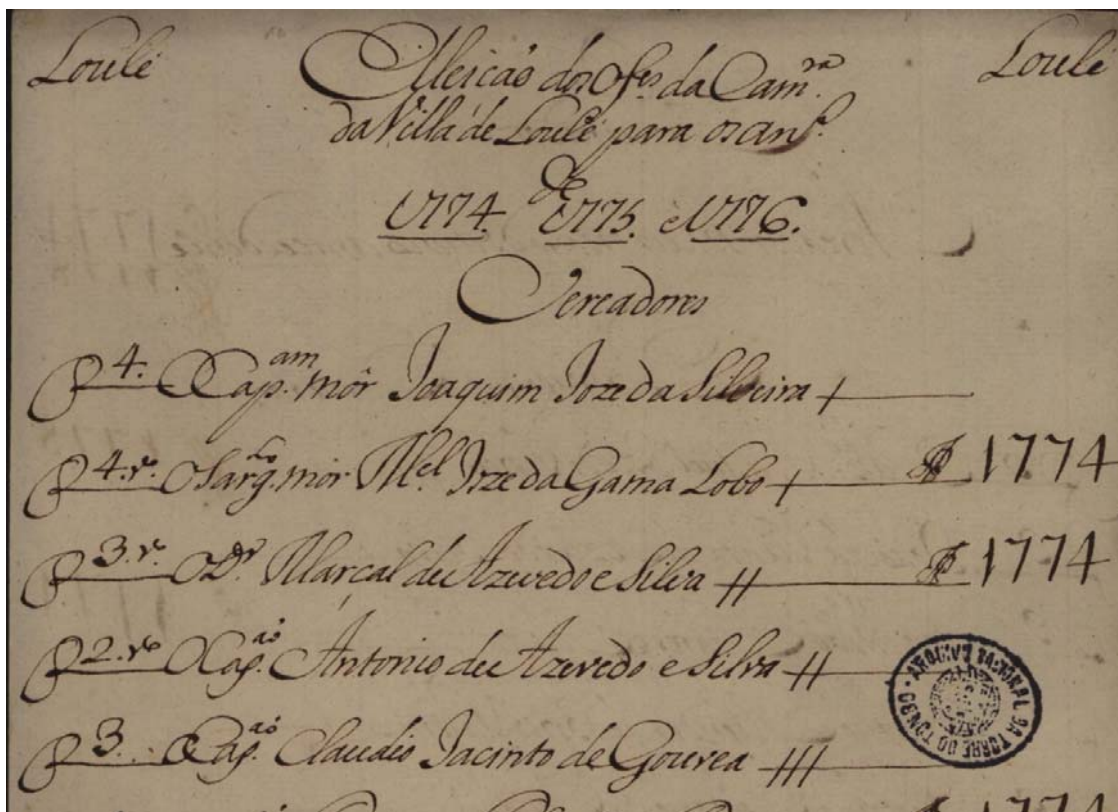 Loulé
Elleicáo dos Of.es da Cam.ra
Loulé
da Villa de Loulé para os an.s
de
1774. 1775. e 1776.
Vereadores
4. O Cap.am mór Joaquim Joze da Silveira +
4. r. O Sarg.to mór M.el Joze da Gama Lobo + 1774
3. r. O D.r Marçal de Azevedo e Silva ++ 1774
2. r.o O Cap.ao Antonio de Azevedo e Silva ++
3. O Cap.ao Claudio Jacinto de Gouvea +++
ARQUIVO NACIONAL DA TORRE DO TOMBO
1774